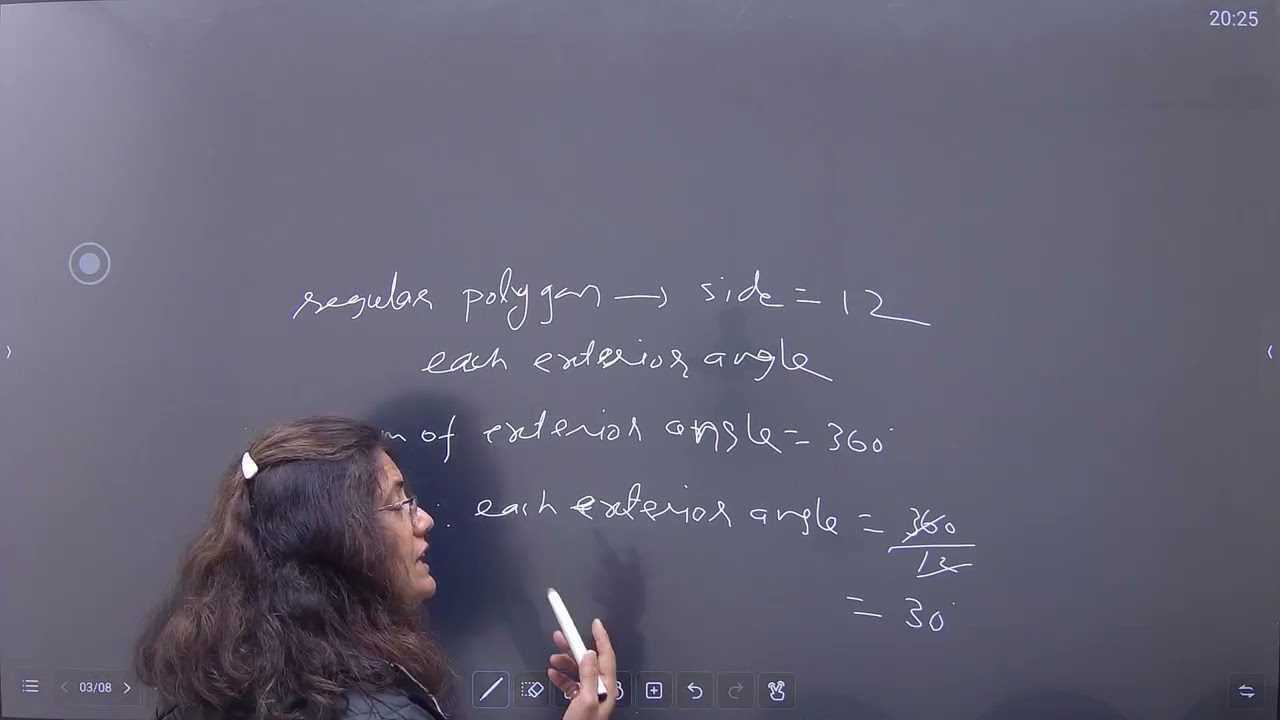 20:25
regular polygon → side = 12
each exterior angle
of exterior angle = 360°
∴ each exterior angle = 360/12
= 30°
03/08